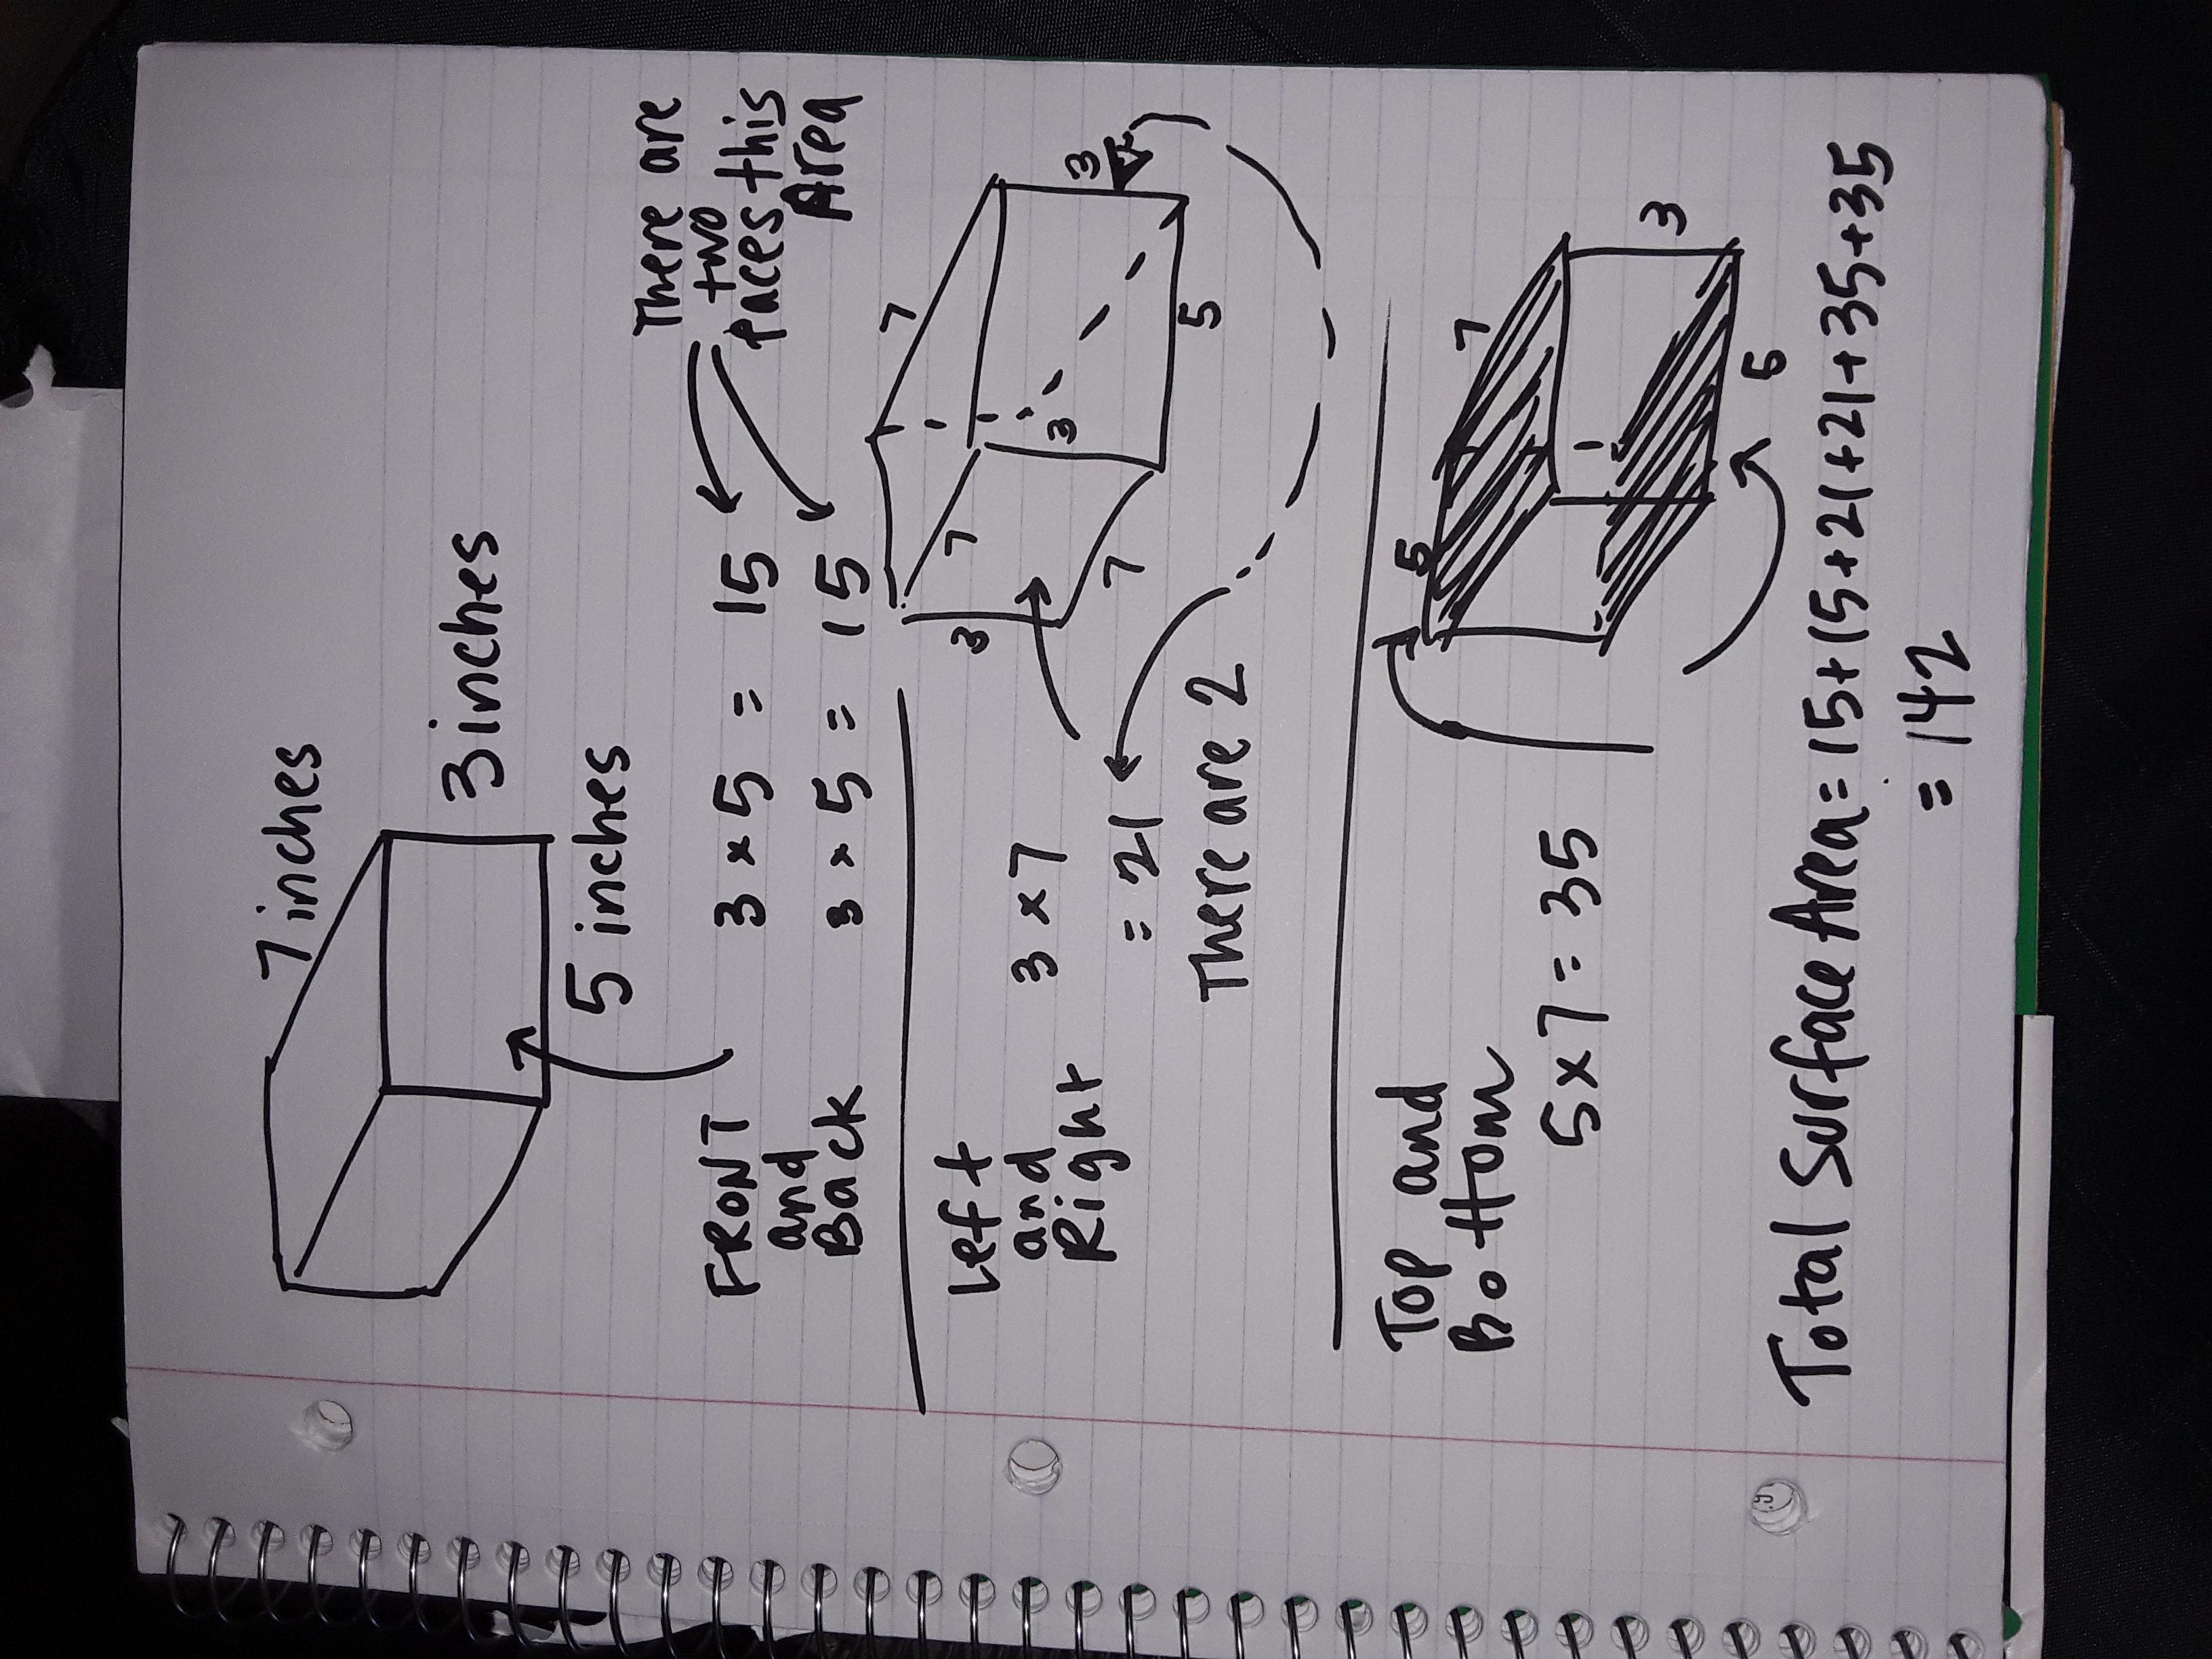 7 inches
3 inches
5 inches
FRONT
and
Back
3 x 5 = 15
3 x 5 = 15
There are
two
places this
Area
Left
and
Right
3 x 7
= 21
There are 2
7
3
3
7
3
7
5
Top and
Bottom
5 x 7 = 35
5
7
3
5
Total Surface Area = 15+15+21+21+35+35
= 142